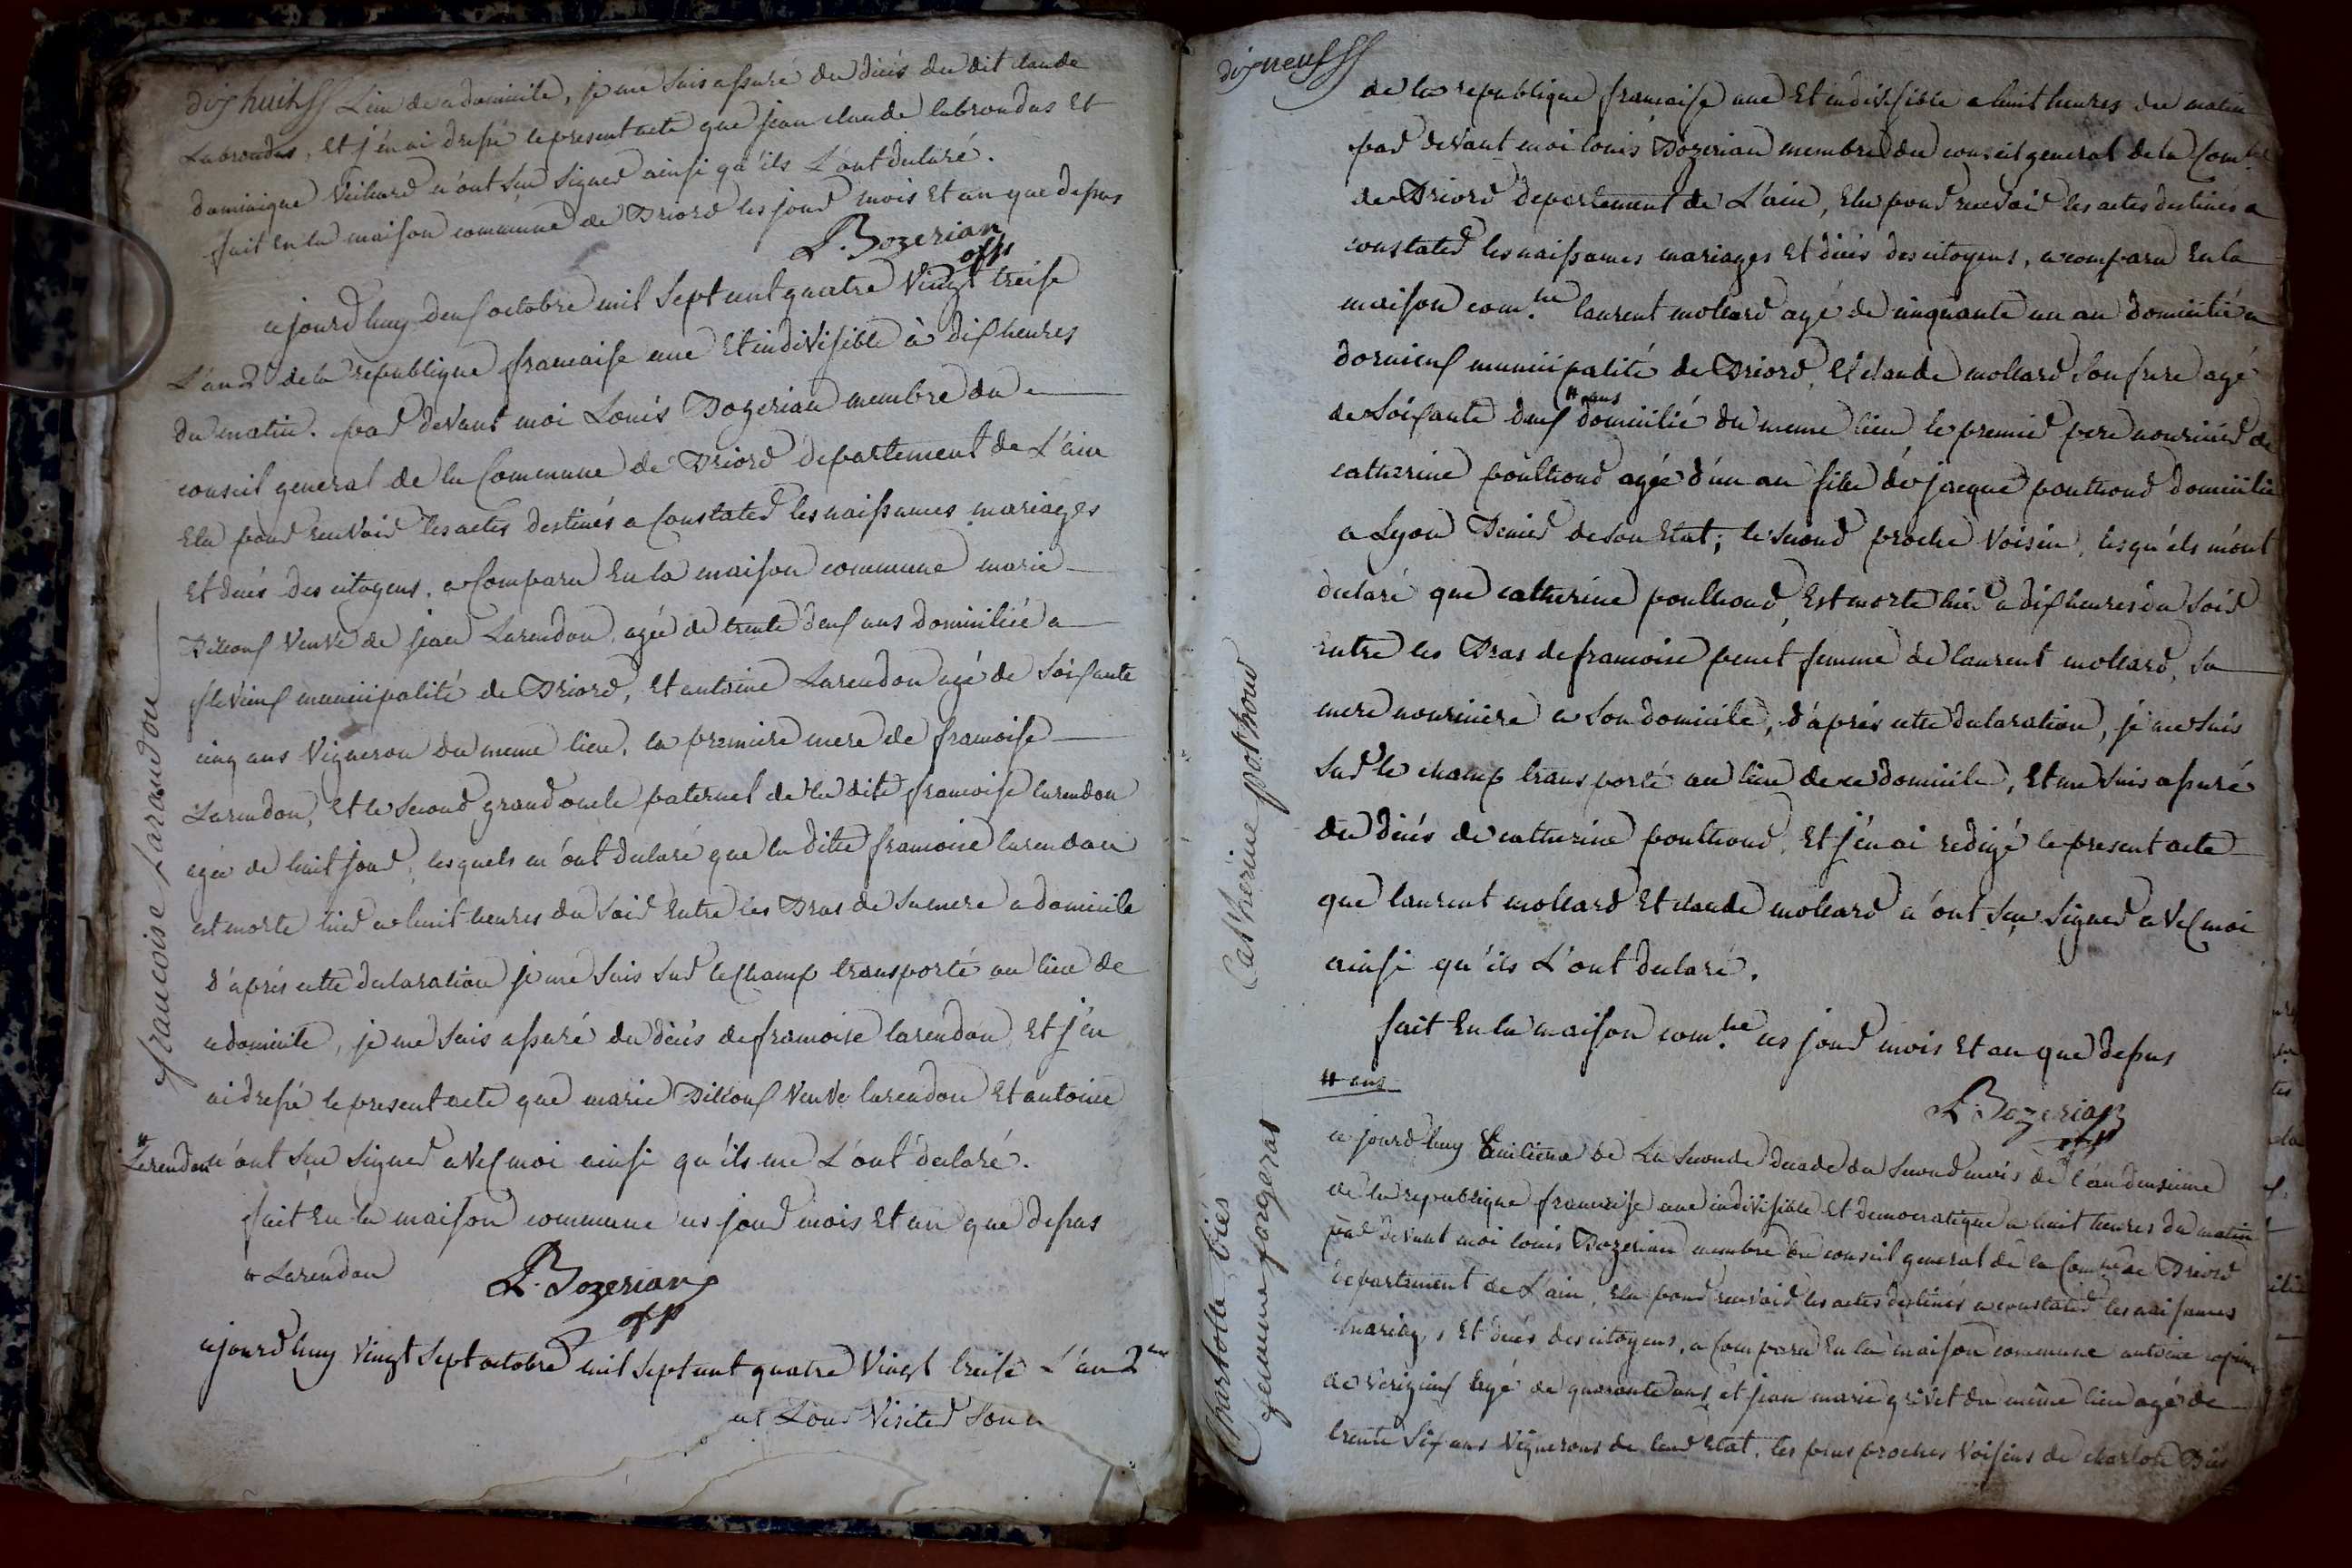 dixhuit
Lieu de ce domicile, je me suis assuré du décés du dit claude
Labrondas, Et j'en ai dressé le present acte que jean claude labrondas Et
dominique Veillard n'ont sçu signer ainsi qu'ils L'ont declaré.
fait En la maison commune de Briord les jour mois Et an que dessus
L. Bozerian
off
cejourd'huy deux octobre mil Sept cent quatre Vingt treise
L'an 2 de la republique francaise une Et indivisible à dix heures
du matin. par devant moi Louis Bozerian membre du
conseil general de la Commune de Briord departement de L'ain
Elu pour recevoir les actes destinés a Constater les naissances mariages
Et decés des citoyens, a Comparu En la maison commune marie
Billoux Veuve de jean Larendon, agée de trente deux ans domiciliée a
flevieux municipalité de Briord, Et antoine Larendon agé de Soixante
cinq ans Vigneron du meme lieu, la premiere mere de francoise
Larendon, Et le Second grand oncle paternel de la dite francoise larendon
agée de huit jour, lesquels m'ont declaré que la dite francoise larendon
est morte hier a huit heures du Soir Entre les Bras de sa mere a domicile
d'aprés cette declaration je me Suis Sur le Champ transporté au lieu de
ce domicile, je me suis assuré du décés de francoise larendon, Et j'en
ai dressé le present acte que marie Billoux Veuve larendon Et antoine
Larendon n'ont sçu signer avec moi ainsi qu'ils me L'ont declaré.
fait En la maison commune les jour mois Et an que dessus
# Larendon
L. Bozerian
off
cejourd'huy Vingt Sept octobre mil sept cent quatre Vingt treise L'an 2eme
francoise Larandon
dixneuf
de la republique francaise une Et indivisible a huit heures du matin
par devant moi louis Bozerian membre du conseil general de la Com.ne
de Briord departement de L'ain, Elu pour recevoir les actes destinés a
constater les naissances mariages Et décés des citoyens, a comparu En la
maison com.ne laurent mollard agé de cinquante un an domicilié a
dornieux municipalité de Briord, Et claude mollard Son frere agé
de Soixante deux # ans domicilié du meme lieu, le premier pere nouricier de
catherine pouthoud agée d'un an fille de jacque pouthoud domicilié
a Lyon de son Etat; le Second proche Voisin, lesquels m'ont
declaré que catherine pouthoud Est morte hier a dix heures du Soir
entre les Bras de francoise penet femme de laurent mollard, Sa
mere nouriciere a Son domicile, d'aprés cette declaration, je me Suis
Sur le champ transporté au lieu de ce domicile, Et me Suis assuré
du décés de catherine pouthoud, Et j'en ai redigé le present acte
que laurent mollard Et claude mollard n'ont sçu Signer avec moi
ainsi qu'ils L'ont declaré.
fait En la maison com.ne les jour mois Et an que dessus
# ans
L. Bozerian
off
ce jourd'huy de La Seconde decade du Second mois de l'an deuxieme
de la republique francaise une indivisible Et democratique a huit heures du matin
par devant moi louis Bozerian membre du conseil general de la Com.ne de Briord
departement de L'ain, Elu pour recevoir les actes destinés a constater les naissances
mariages Et décés des citoyens, a Comparu En la maison commune antoine
de Verizieu agé de quarante ans, et jean marie grivet du même lieu agé de
trente Six ans Vignerons de leur Etat, les plus proches Voisins de charlote Biès
Catherine pothoud
Charlotte biés
femme fangeras